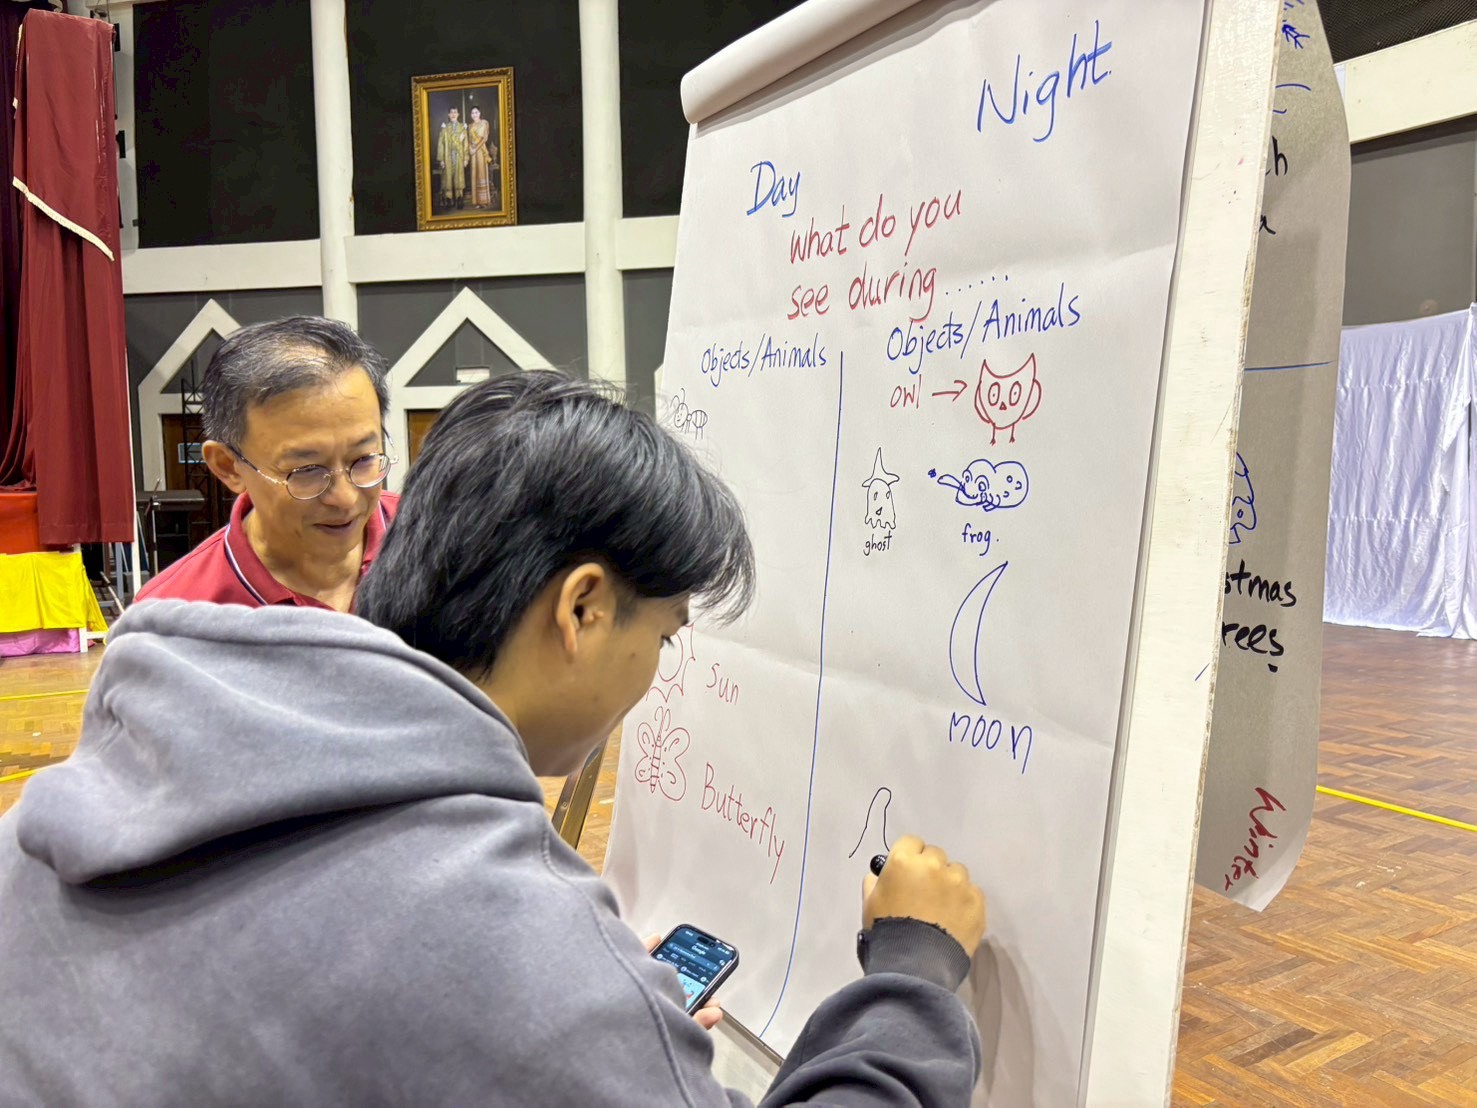 Night
Day
What do you
see during......
Objects/Animals
Objects/Animals
owl →
ghost
frog.
Sun
moon
Butterfly
stmas
rees
Winter